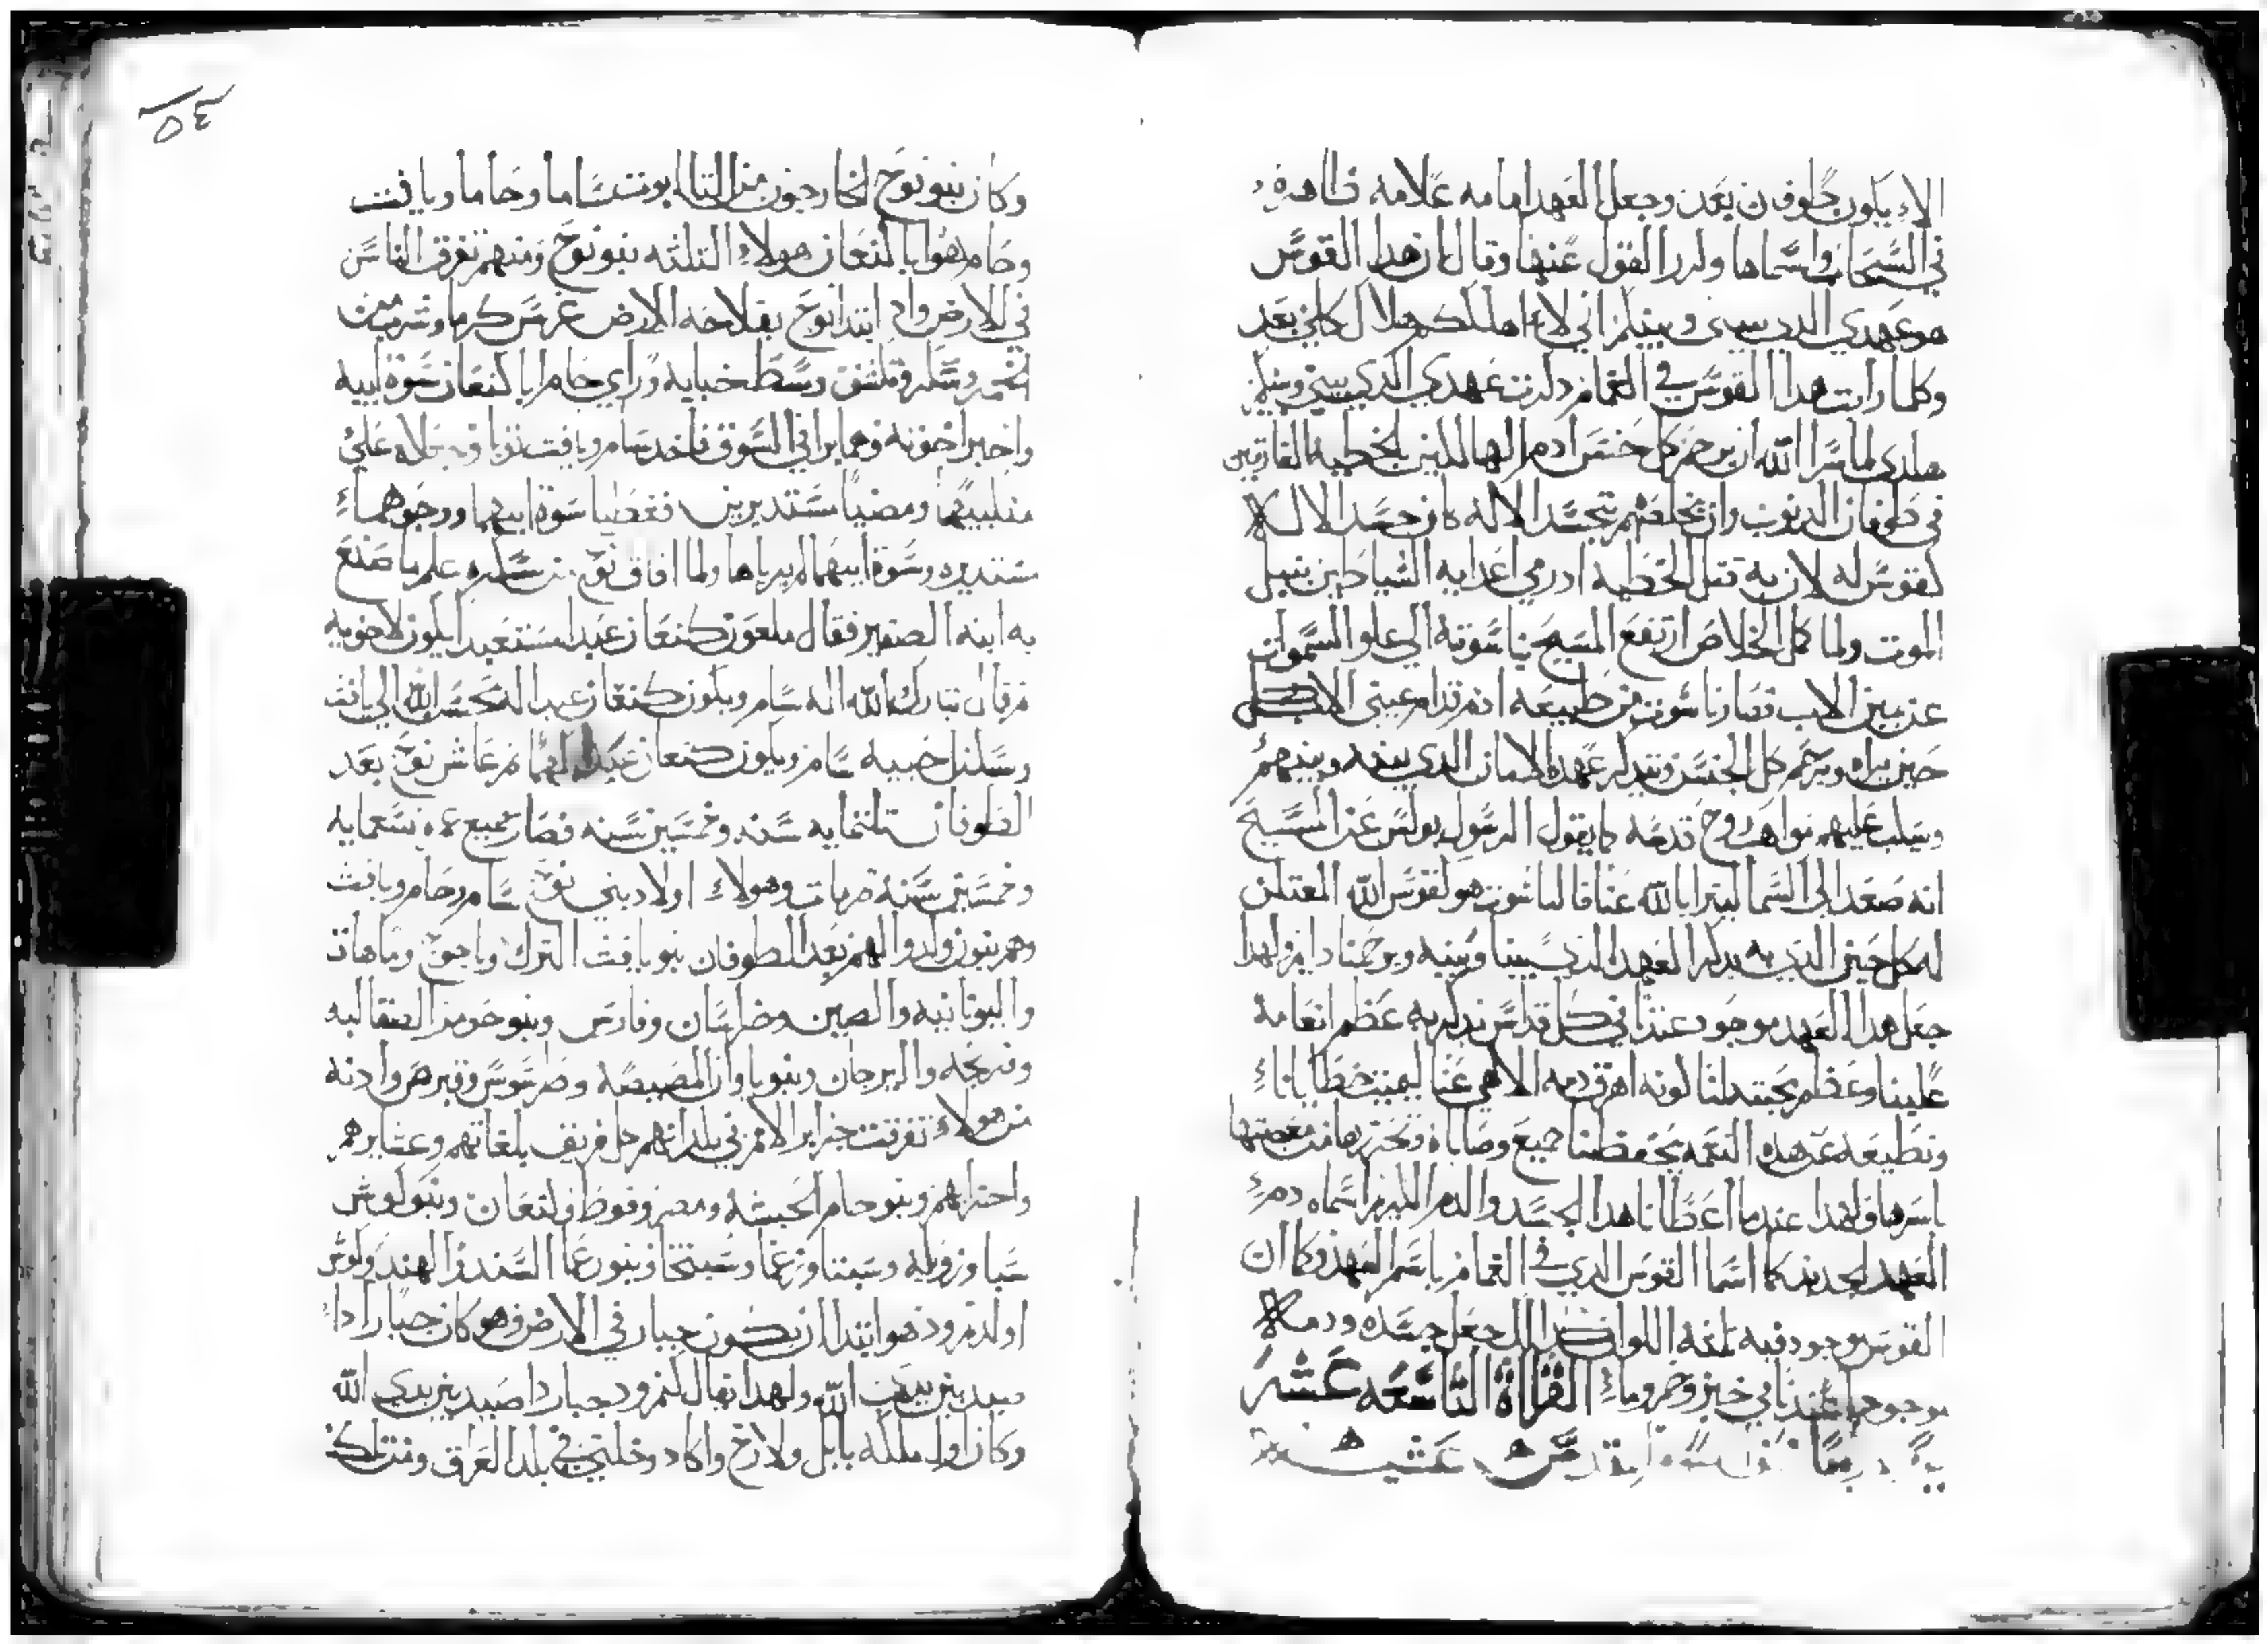 الا يكون طوفان بعد وجعل العهد امامه علامه ظاهره
في السحاب واسماها وكرر القول عنها وقال ان هدا القوس
هو عهدي الدي بيني وبينكم اني لا اهلككم هلال كلي بعد
وكلما رايت هدا القوس في الغمام دكرت عهدي الدي بيني وبينكم
هلدى لما سرا الله ان يرحم كل جنس ادم الهالكين بالخطيه الغارقين
في طوفان الدنوب وان يخلصهم بتجسد الاله كان جسد الاله
كقوس له لان به قتل الخطيه اد رمي اعدايه الشياطين بنبل
الموت ولما كمل الخلاص ارتفع المسيح بناسوته الي علو السموات
عن يمين الاب فصار ناسوته من طبيعه ادم قدام عيني الاب كل
حين يراه ويرحم كل الجنس ويتدكر عهد الامان الدي بينه وبينهم
ويسلب عليهم مواهب روح قدسه كما يقول الرسول بولس عن المسيح
انه صعد الي السما ليترايا لله عنا فالناسوت هو كقوس الله المعتلن
له كل حين الدي به يدكر العهد الدي بيننا وبينه ويرحمنا دايم ولهدا
جعل هدا العهد موجود عندنا في كل قداس ندكر به عظم انعامه
علينا وعظم محبته لنا لونه اهرق دمه الالاهي عنا ليميت خطايانا
ونطيعه عن هده النعمه بحفظنا جميع وصاياه
باسرها ولهدا عندما اعطانا هدا الجسد والدم الكريم اسماه دم
العهد الجديد كما اسما القوس الدي في الغمام باسم العهد وكما ان
القوس موجود فيه تلته الوان كدلك جعل جسده ودمه
موجود عندنا في خبز وخمر وما القراة التاسعه عشر
وكان بنو نوح الخارجون من التابوت ساما وحاما ويافت
وحام هو ابا كنعان هولاء التلته بنو نوح ومنهم تفرق الناس
في الارض واد ابتدا نوح بفلاحه الارض غرس كرما وشرب من
الخمر وسكر وتكشف وسط خبايه وراي حام ابا كنعان سوة ابيه
واخبر اخوته وهما برا في السوق فاخد سام ويافت توبا وجعلاه علي
منكبيهما ومضيا مستديرين فغطيا سوة ابيهما ووجوههما
مستديره وسوة ابيهما لم يرياها ولما افاق نوح من سكره علم ما صنع
به ابنه الصغير فقال ملعون كنعان عبدا مستعبدا يكون لاخويه
تم قال تبارك الله اله سام ويكون كنعان عبدا له يحسن الله الي يافت
ويسكن اخبيه سام ويكون كنعان عبدا لهما تم عاش نوح بعد
الطوفان تلتمايه سنه وخمسين سنه فصار جميع عمره تسعمايه
وخمسين سنه تم مات وهولاء اولاد بني نوح سام وحام ويافت
وهم بنون ولدوا لهم بعد الطوفان بنو يافت الترك وياجوج وماهات
واليونانيه والصين وخراسان وفارس وبنو جومر الصقالبه
وفرنجه والبرجان وبنو ياوان المصيصه وطرسوس وقبرص وادنه
من هولاء تفرقت جزاير الامم في بلدانهم كل فريق بلغاتهم وعشايرهم
واحزابهم وبنو حام الحبشه ومصر وفوط وكنعان وبنو كوش
سبا وزويله وسبتا ورعما وسبتخا وبنو رعما السند والهند وكوش
اولد نمرود هو ابتدا ان يكون جبار في الارض وهو كان جبارا دا
صيد بين يدي الله ولهدا يقال كنمرود جبار دا صيد بين يدي الله
وكان اول مللكه بابل ولارخ واكاد وخلني في بلد العراق ومن تلك